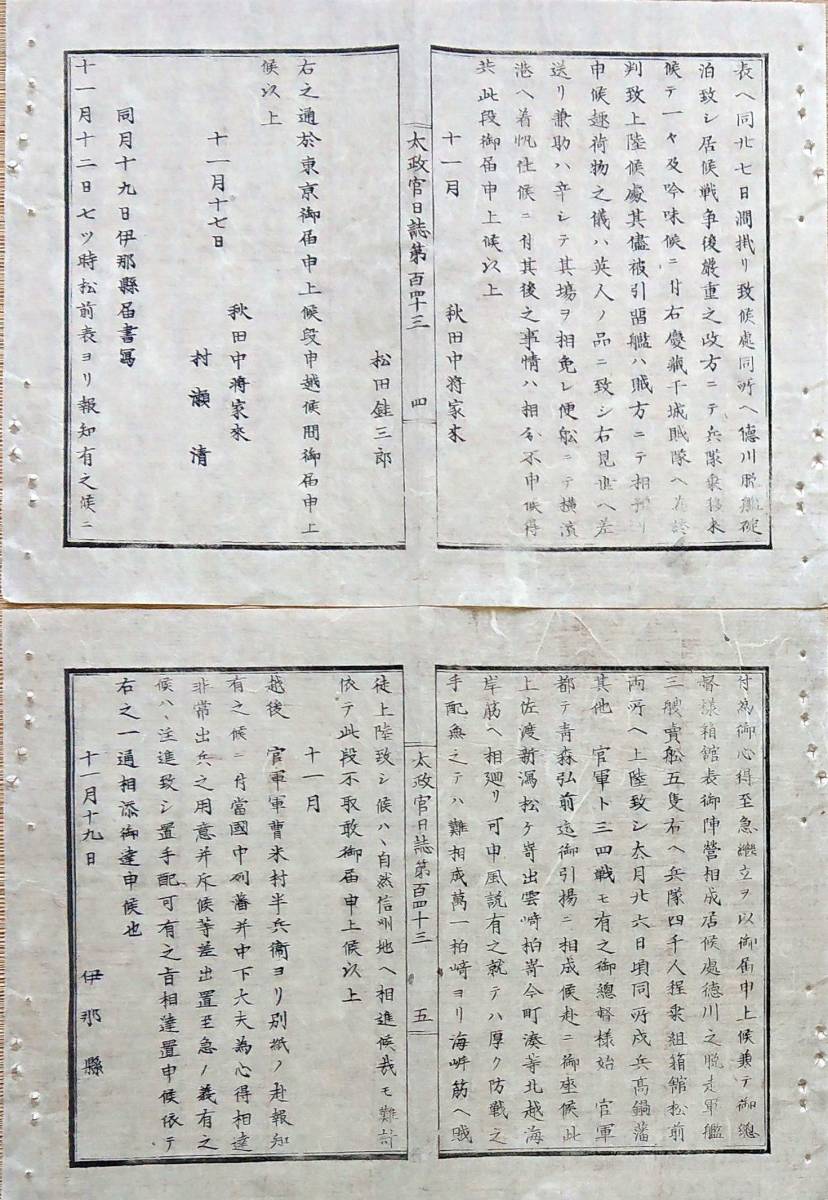 表ヘ同廿七日澗掛リ致候處同所ヘ德川脱艦碇
泊致シ居候戦争後嚴重之改方ニテ兵隊乗移来
候テ一々及吟味候ニ付右慶藏干城賊隊ヘ
判致上陸候處其儘被引畄艦ハ賊方ニテ相預リ
申候趣荷物之儀ハ英人ノ品ニ致シ右見世ヘ差
送リ兼助ハ辛シテ其場ヲ相免レ便舩ニテ横濱
港ヘ着帆仕候ニ付其後之事情ハ相分不申候得
共此段御届申上候以上
十一月 秋田中將家来
松田銈三郎
太政官日誌第百四十三 四
右之通於東京御届申上候段申越候間御届申上
候以上
十一月十七日 秋田中將家来
村瀬清
同月十九日伊那縣届書寫
十一月十二日七ツ時松前表ヨリ報知有之候ニ
付為御心得至急繼立ヲ以御届申上候兼テ御總
督様箱館表御陣營相成居候處德川之脱走軍艦
三艘賣舩五隻右ヘ兵隊四千人程乗組箱館松前
両所ヘ上陸致シ去月廿六日頃同所戍兵高鍋藩
其他 官軍ト三四戦モ有之御總督様始 官軍
都テ青森弘前迄御引揚ニ相成候赴ニ御座候此
上佐渡新潟松ケ嵜出雲崎柏嵜今町湊等北越海
岸筋ヘ相廻リ可申風説有之就テハ厚ク防戦之
手配無之テハ難相成萬一柏崎ヨリ海岸筋ヘ賊
太政官日誌第百四十三 五
徒上陸致シ候ハヽ自然信州地ヘ相進候哉モ難計
依テ此段不取敢御届申上候以上
十一月
越後 官軍軍曹米村半兵衛ヨリ別紙ノ赴報知
有之候ニ付當國中列藩并中下大夫為心得相達
非常出兵之用意并斥候等差出置至急ノ義有之
候ハヽ注進致シ置手配可有之旨相達置申候依テ
右之一通相添御達申候也
十一月十九日 伊那縣